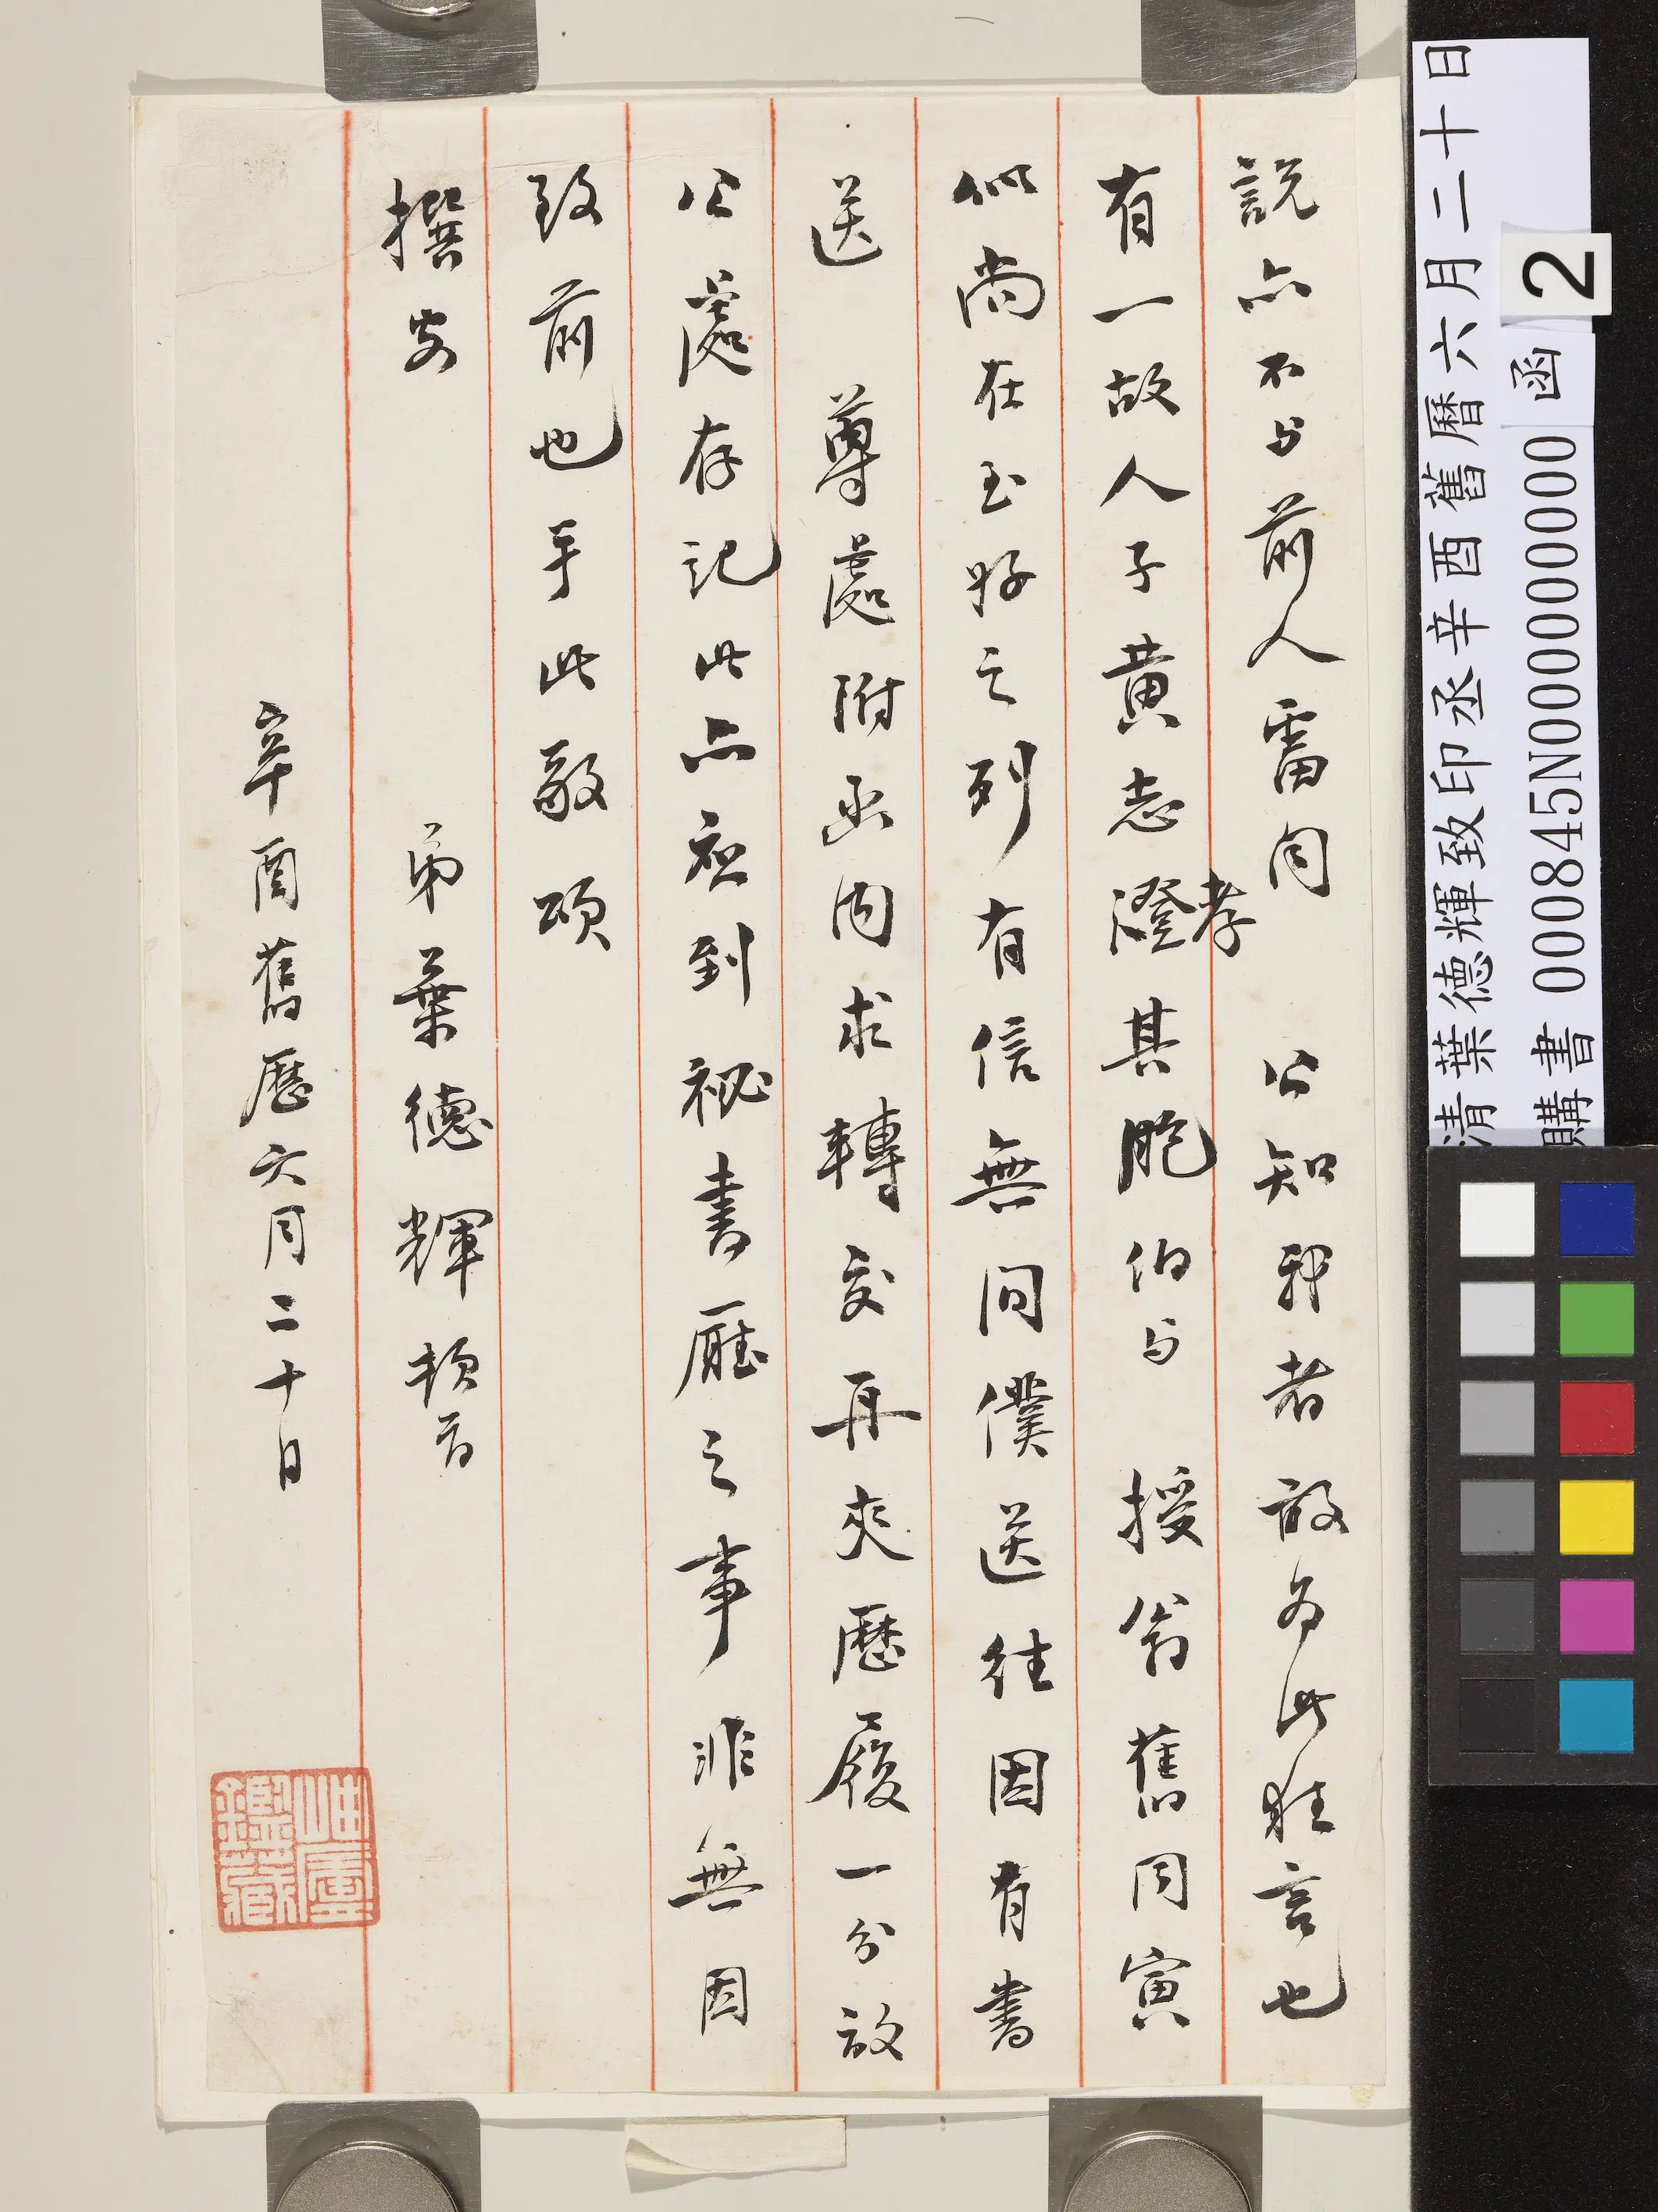 說亦不与前人雷同　公知我者故為此狂言也
有一故人子黃志澄其胞伯与　授翁舊同寅
孝
似尚在至好之列有信無同僕送往因有書
送　尊處附函內求轉交再夾歷履一分故
公處存記此亦應到祕書廳之事非無因
致前也手此敬頌
撰安
弟葉德輝頓首
辛酉舊歷六月二十日
鑑藏
清葉德輝致印丞辛酉舊曆六月二十日
函 2
購書 000845N000000000